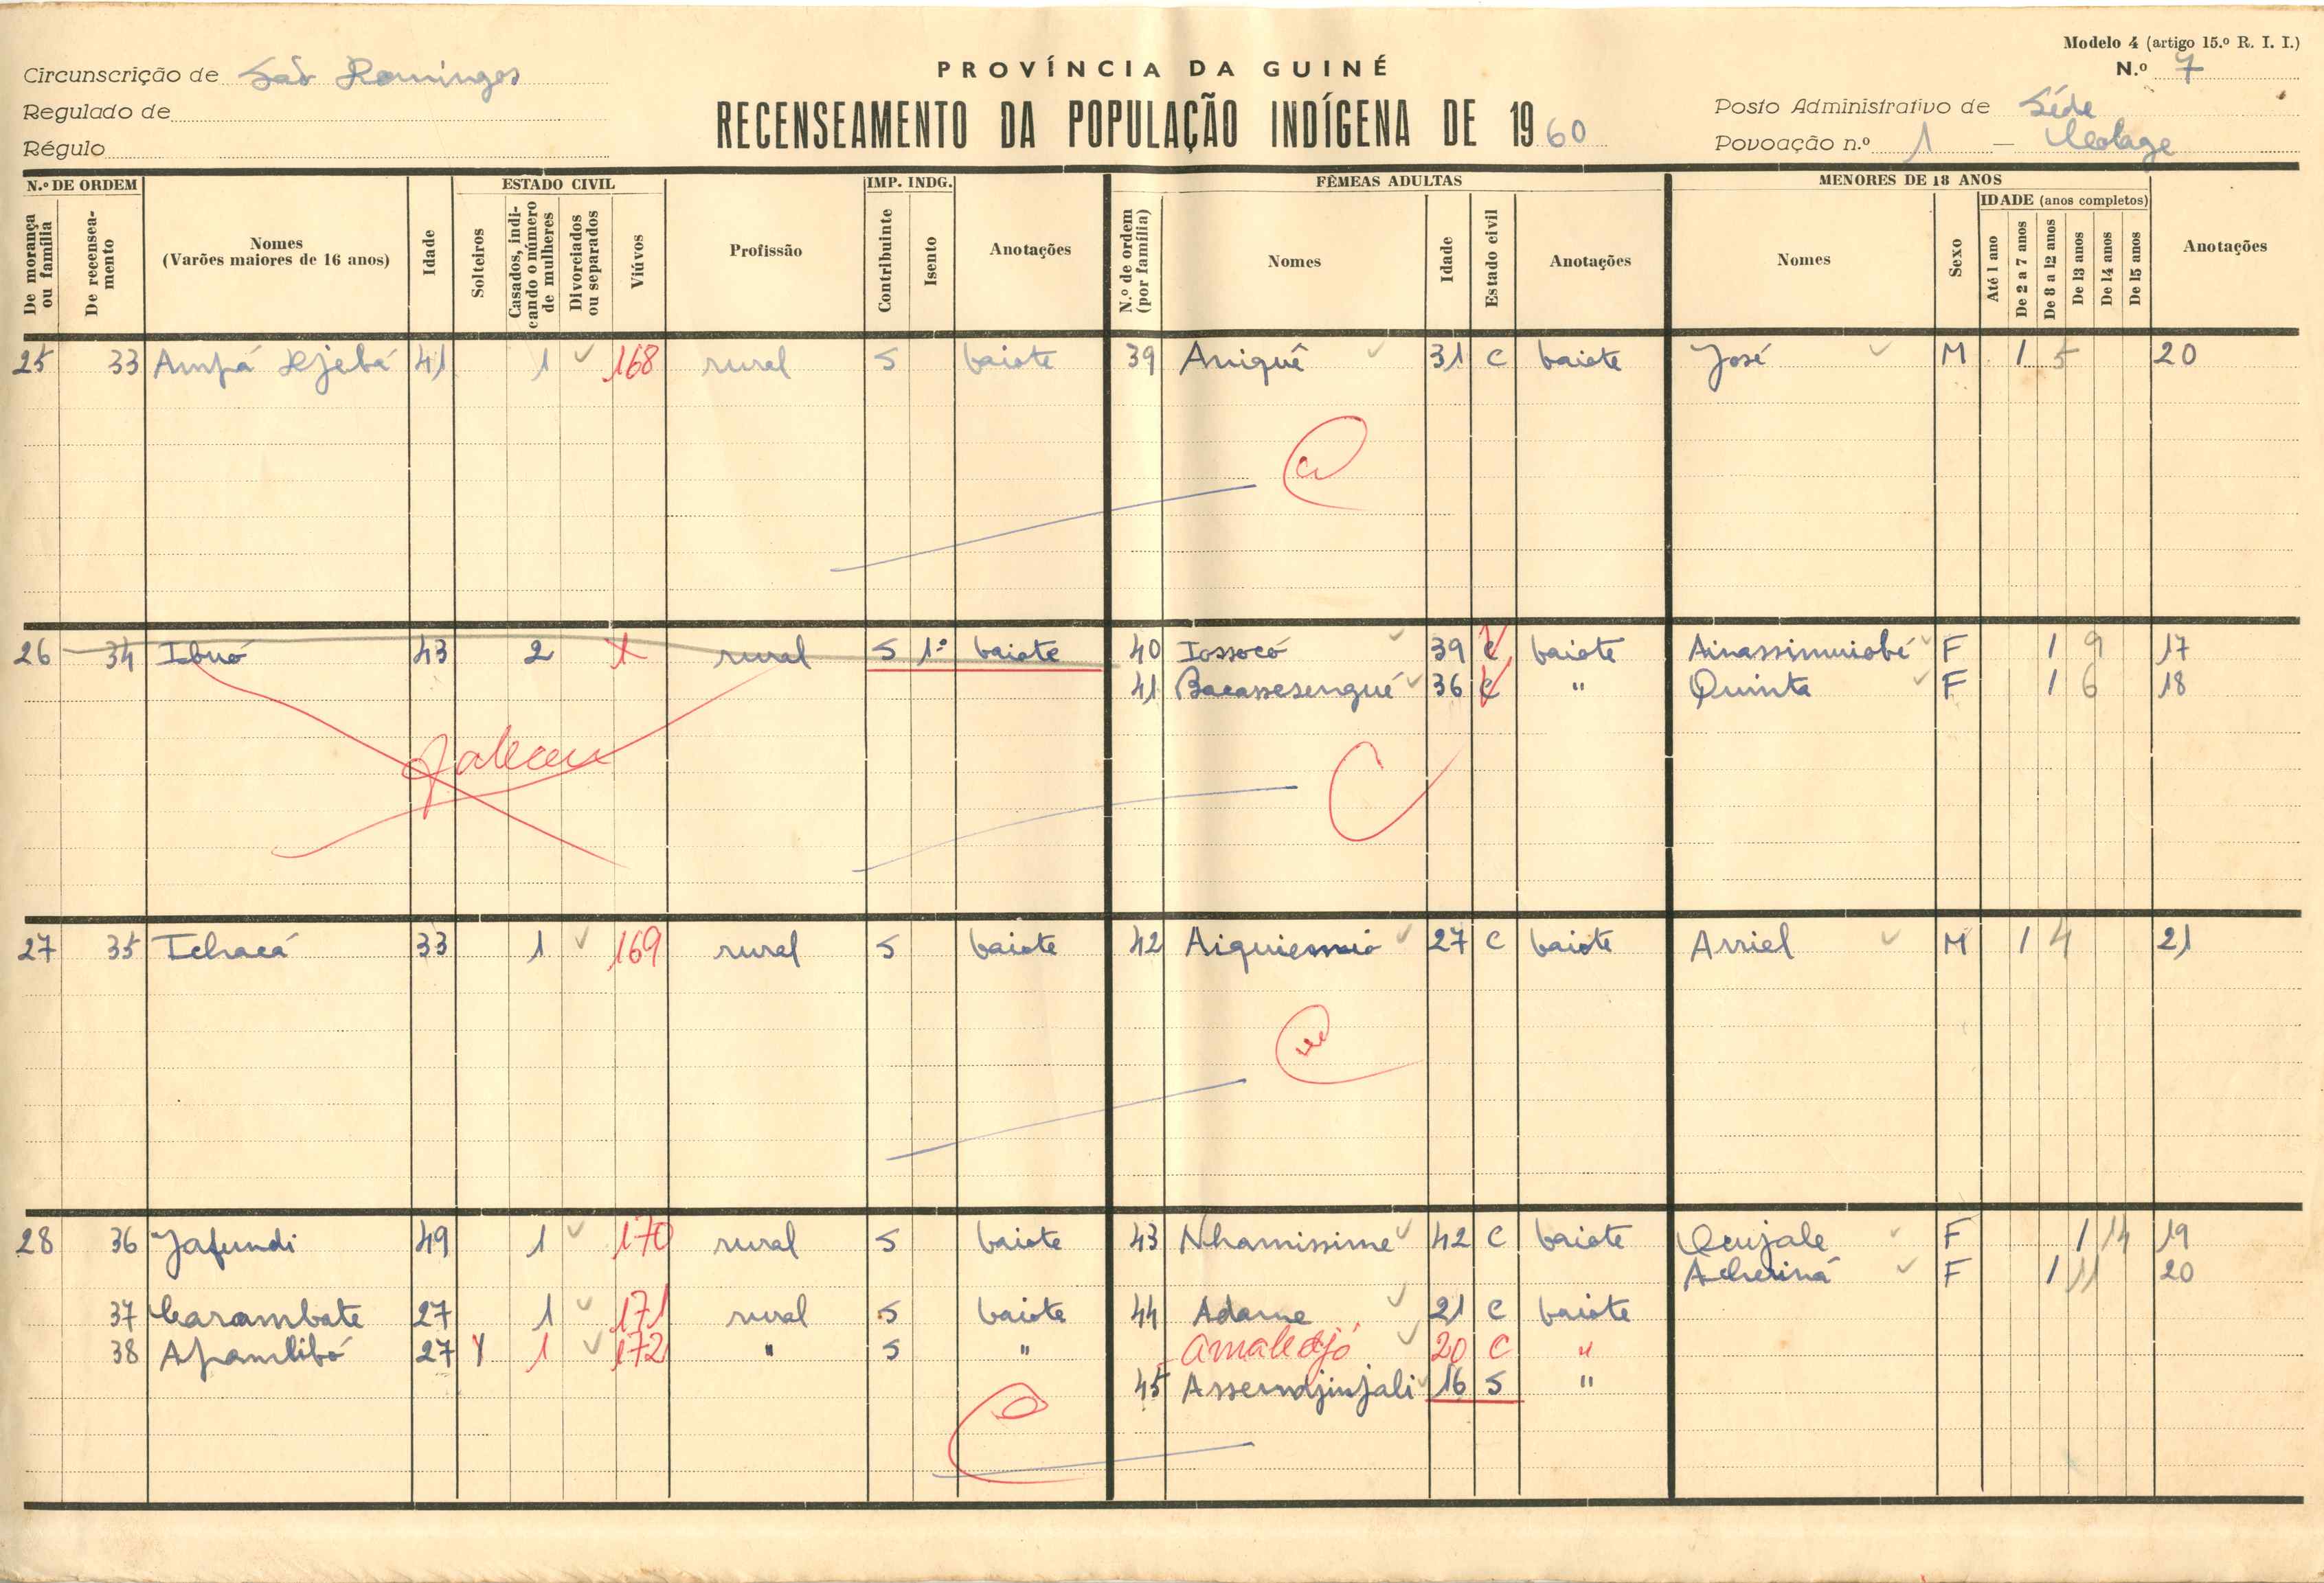 Modelo 4 (artigo 15.º R. I. I.)
N.º 7
PROVÍNCIA DA GUINÉ
RECENSEAMENTO DA POPULAÇÃO INDÍGENA DE 1960
Circunscrição de São Domingos
Regulado de
Régulo
Posto Administrativo de Séde
Povoação n.º 1 —
N.º DE ORDEM
De morança ou família
De recenseamento
Nomes (Varões maiores de 16 anos)
Idade
ESTADO CIVIL
Solteiros
Casados, indicando o número de mulheres
Divorciados ou separados
Viúvos
Profissão
IMP. INDG.
Contribuinte
Isento
Anotações
FÊMEAS ADULTAS
N.º de ordem (por família)
Nomes
Idade
Estado civil
Anotações
MENORES DE 18 ANOS
Nomes
Sexo
IDADE (anos completos)
Até 1 ano
De 2 a 7 anos
De 8 a 12 anos
De 13 anos
De 14 anos
De 15 anos
Anotações
25 33 Ampá Djebá 41 1 168 rural S baiote 39 Aniquê 31 C baiote José M 1 5 20
26 34 Ibuó 43 2 1 rural S 1º baiote 40 Iossocó 39 C baiote Ainassimuiobé F 1 9 17
41 Bacassesengué 36 C " Quinta F 1 6 18
27 35 Ichacá 33 1 169 rural S baiote 42 Aiquiemaió 27 C baiote Arriel M 1 4 21
28 36 Jafundi 49 1 170 rural S baiote 43 Nhamissime 42 C baiote F 1 14 19
Acheriná F 1 11 20
37 Carambate 27 1 171 rural S baiote 44 Adame 21 C baiote
38 Apamlibó 27 1 172 " S " 20 C "
45 Assemdjinjali 16 S "